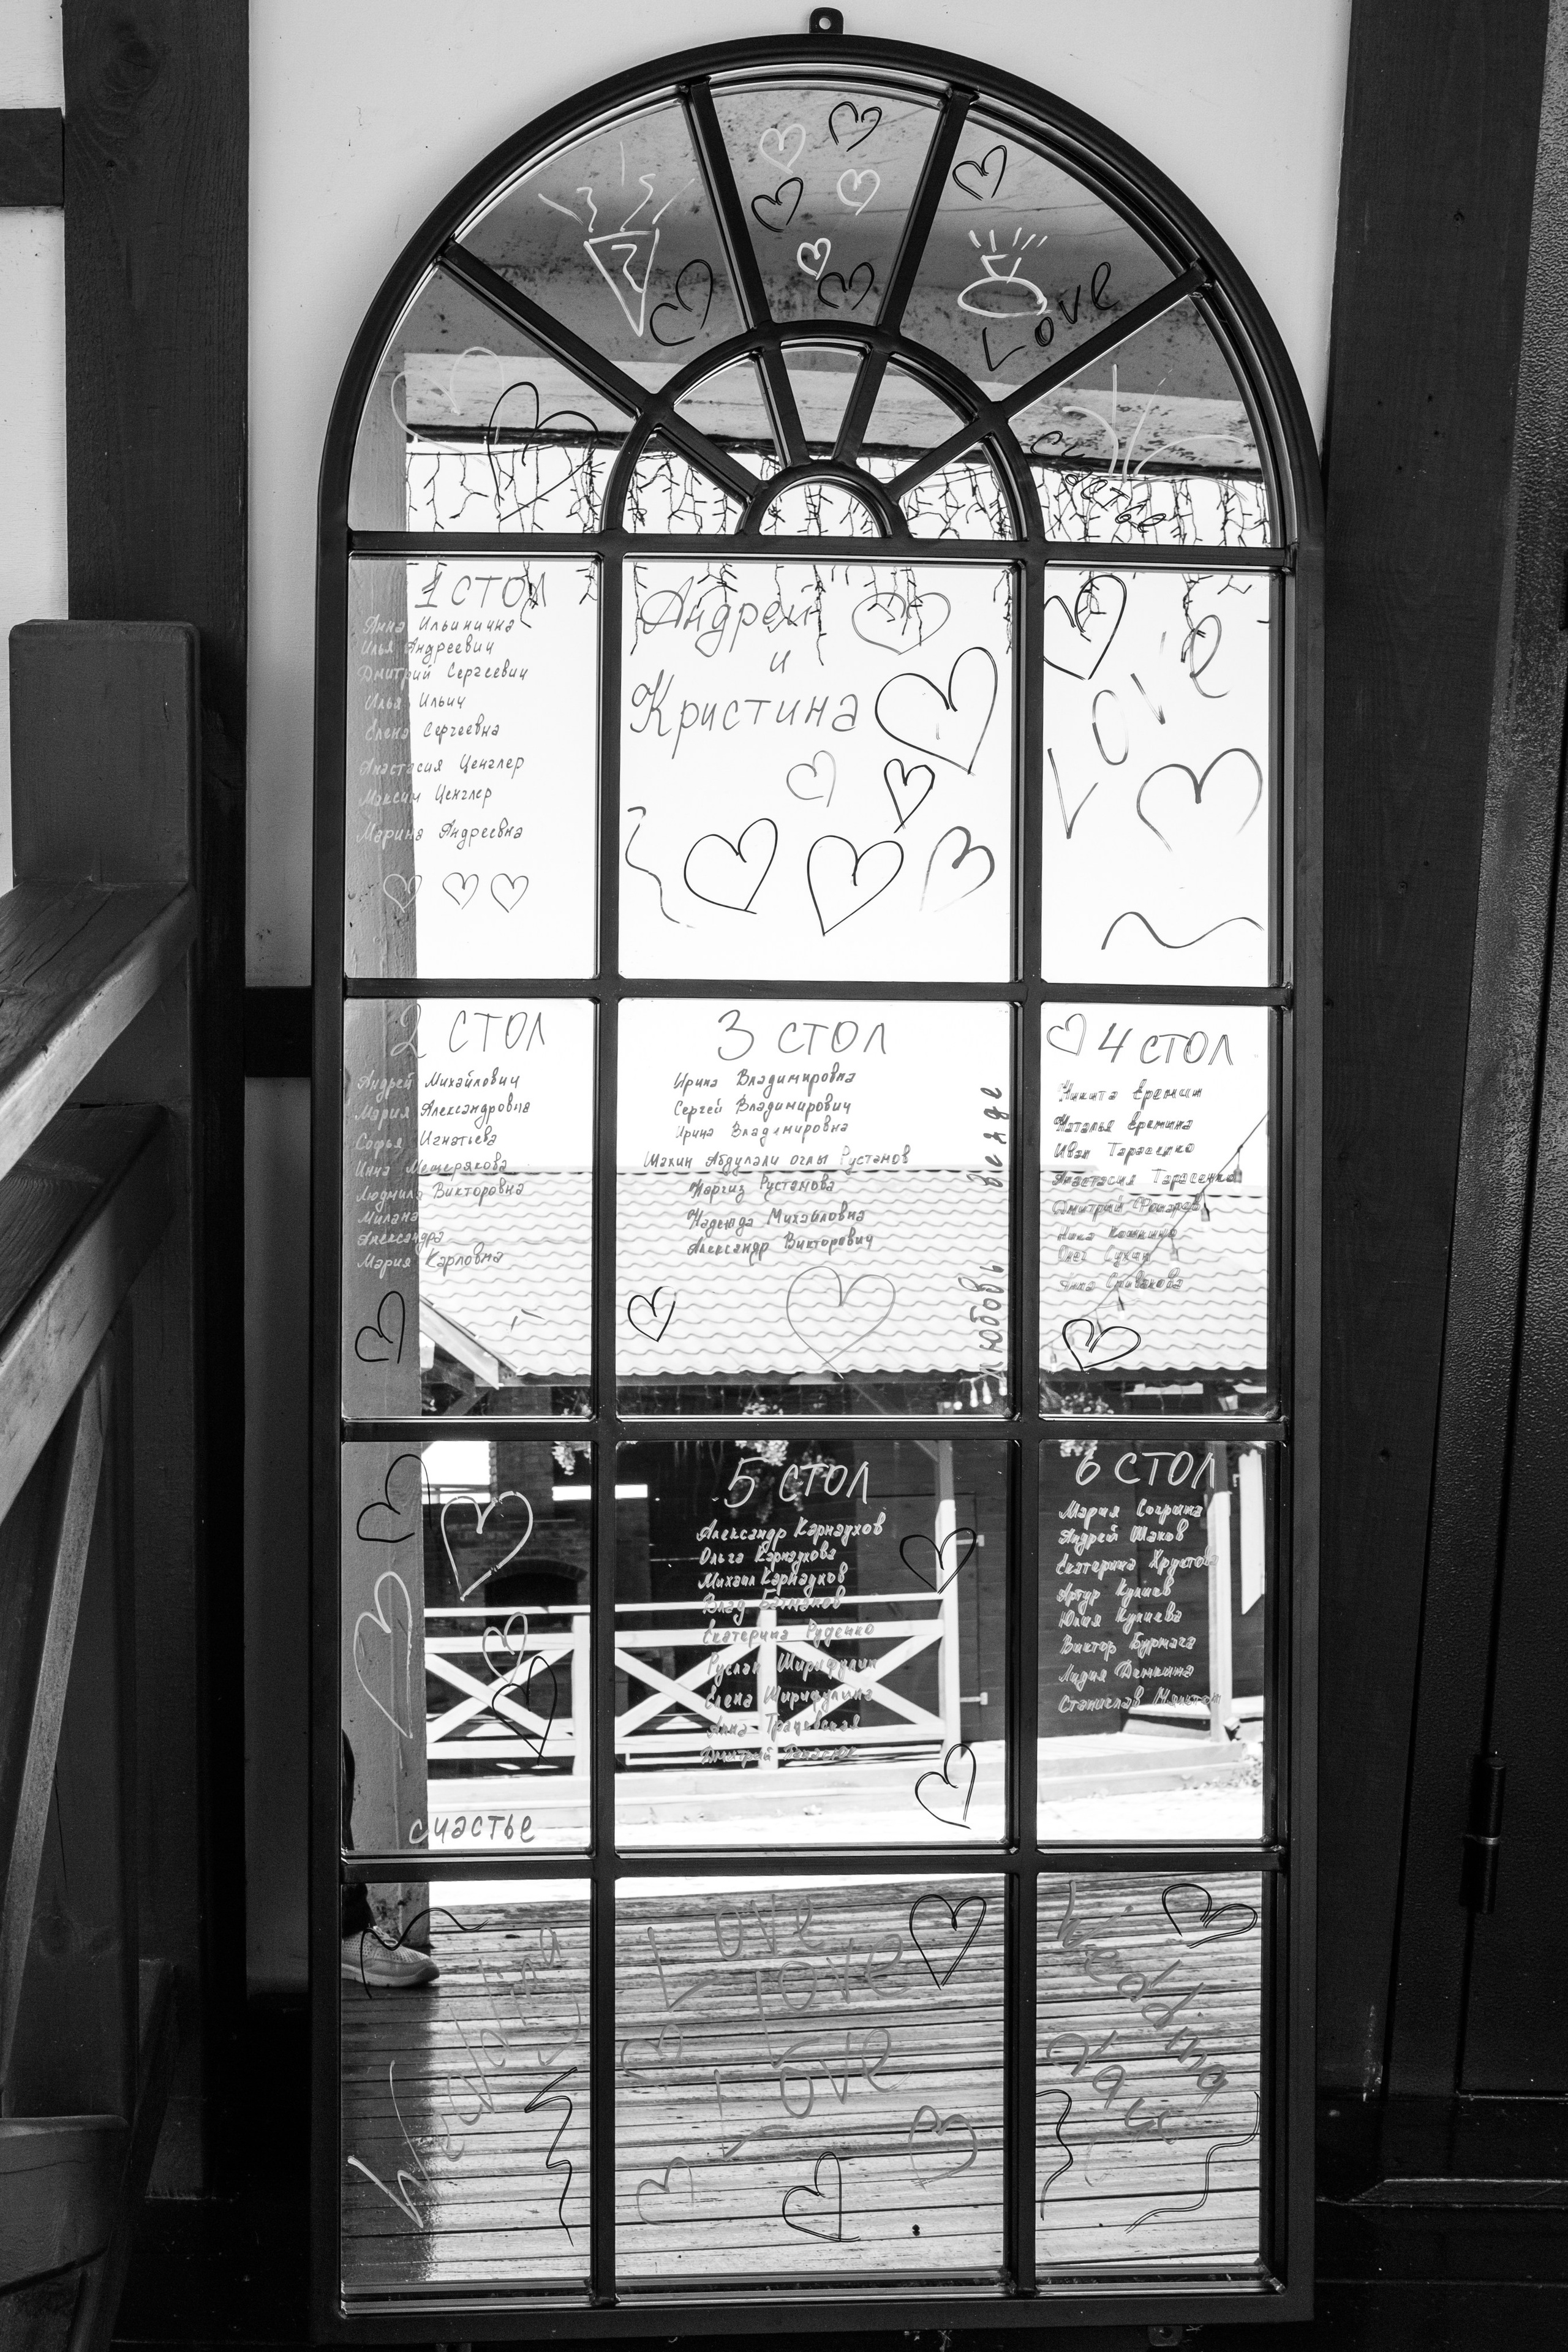 Love
счастье
1 СТОЛ
Анна Ильинична
Илья Андреевич
Дмитрий Сергеевич
Илья Ильич
Елена Сергеевна
Анастасия Ценглер
Максим Ценглер
Марина Андреевна
Андрей
и
Кристина
LOVE
2 СТОЛ
Андрей Михайлович
Мария Александровна
Софья Игнатьева
Инна Мещерякова
Людмила Викторовна
Милана
Александра
Мария Карловна
3 СТОЛ
Ирина Владимировна
Сергей Владимирович
Ирина Владимировна
Шахин Абдулали оглы Рустамов
Наргиз Рустамова
Надежда Михайловна
Александр Викторович
любовь везде
4 СТОЛ
Никита Еремин
Наталья Еремина
Иван Тарасенко
Анастасия Тарасенко
Дмитрий
Ника
Олег Сухан
Анна
счастье
5 СТОЛ
Александр Карнаухов
Ольга Карнаухова
Михаил Карнаухов
Влад
Екатерина Руденко
Руслан Ширифулин
Елена Ширифулина
Анна
Дмитрий
6 СТОЛ
Мария
Андрей Шахов
Екатерина
Артур Кулиев
Юлия Кулиева
Виктор Бурмага
Лидия Демкина
Станислав
Wedding
Love
love
Love
Wedding
day